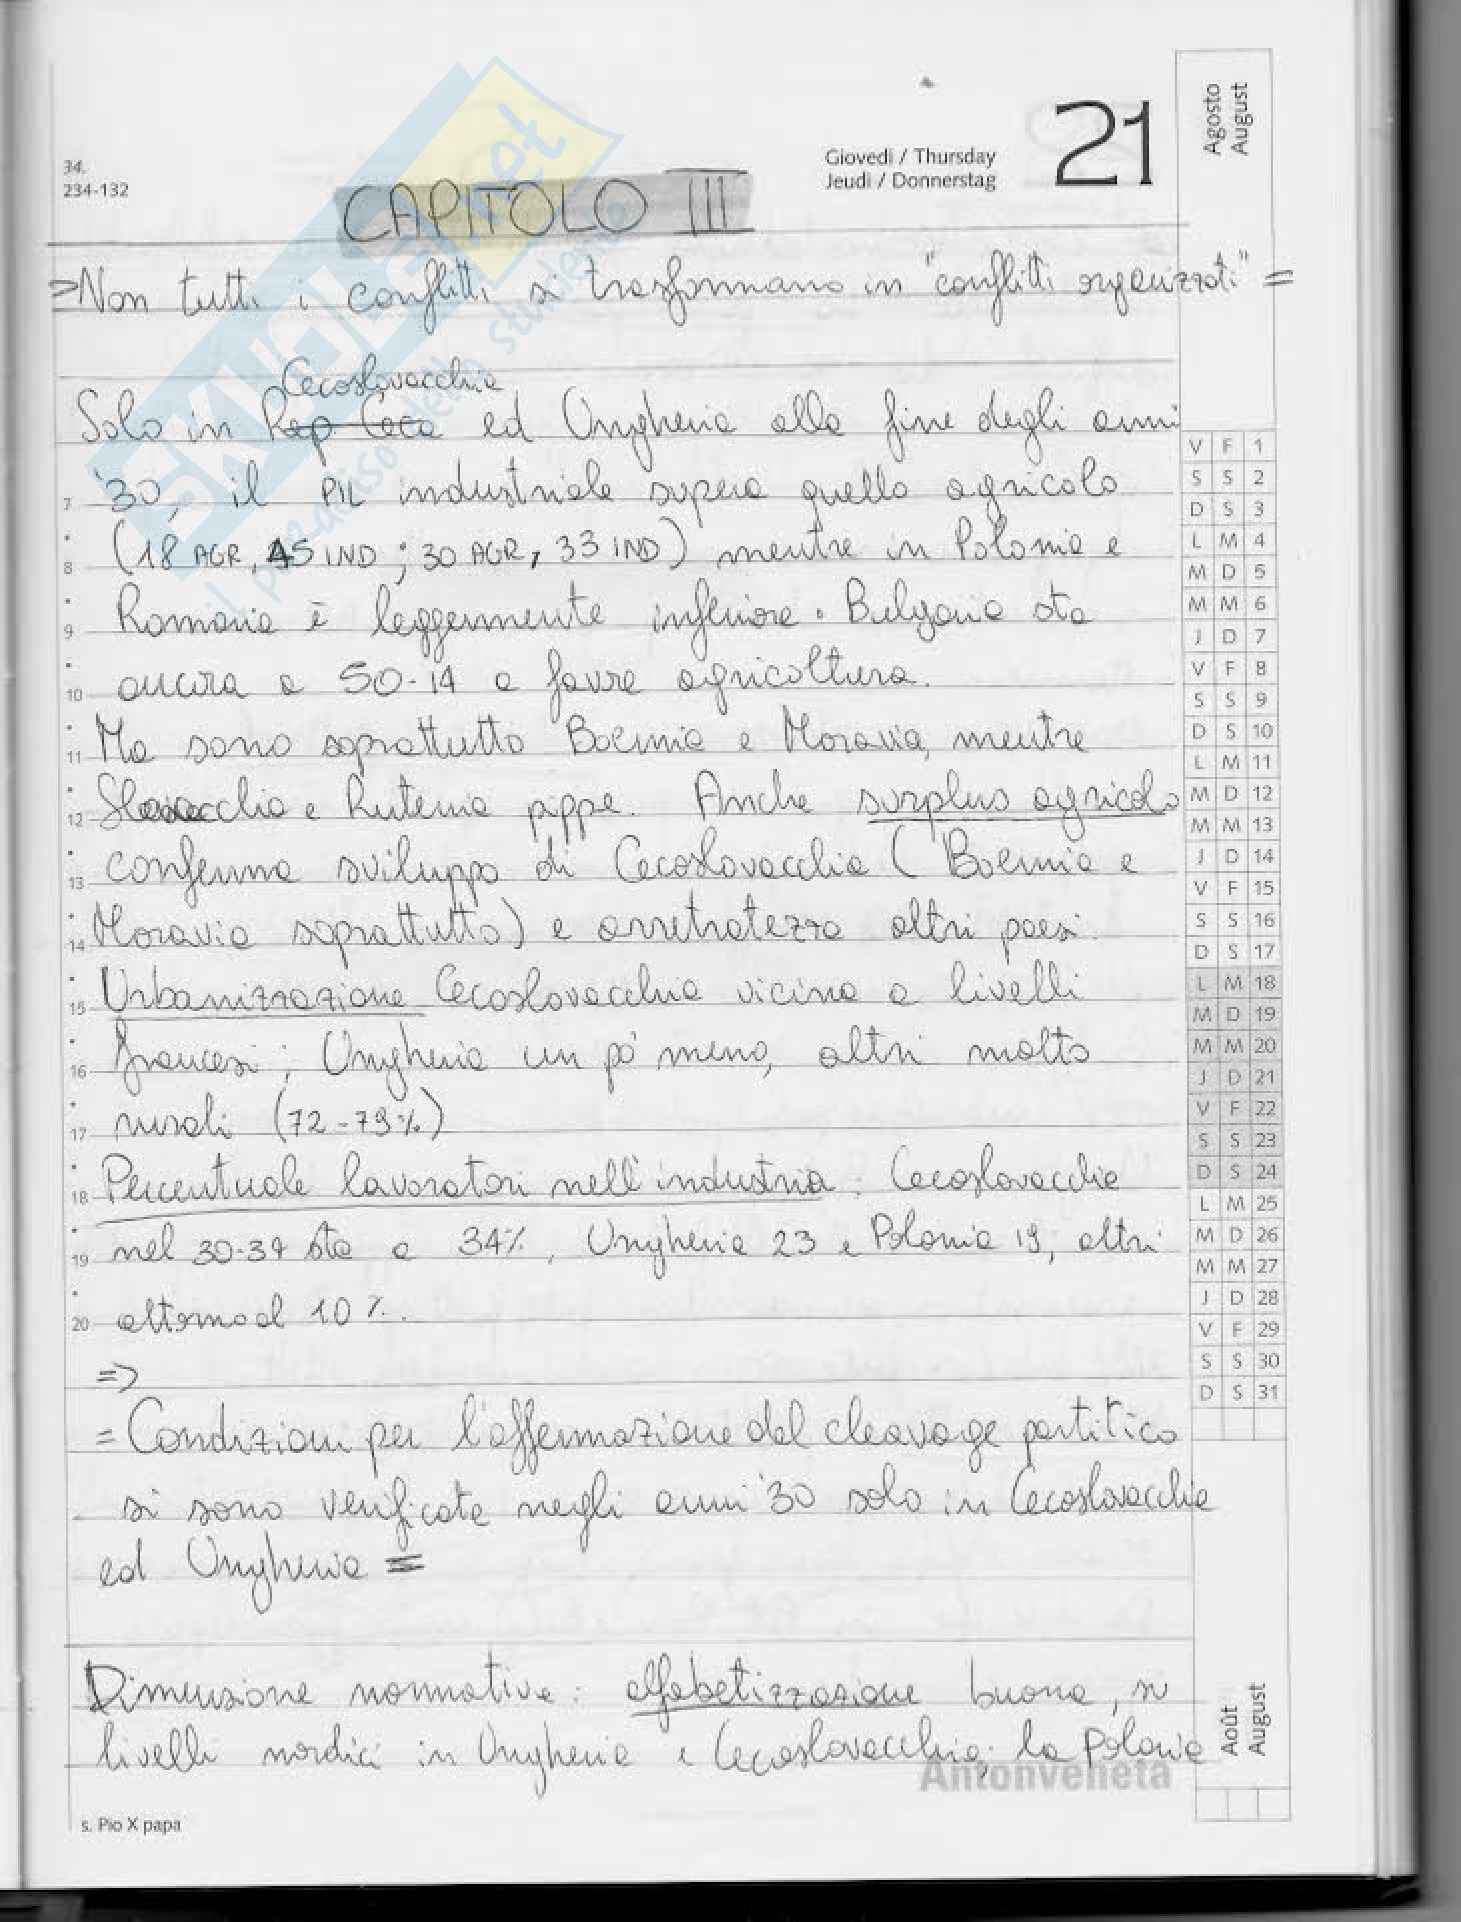 Agosto
August
34.
234-132
Giovedì / Thursday
Jeudi / Donnerstag
21
SKUOLA.net
il paradiso dello studente
CAPITOLO III
=Non tutti i conflitti si trasformano in "conflitti organizzati" =
Cecoslovacchia
Solo in Rep Ceca ed Ungheria alla fine degli anni
'30, il PIL industriale supera quello agricolo
(18 AGR, 45 IND ; 30 AGR, 33 IND) mentre in Polonia e
Romania è leggermente inferiore. Bulgaria sta
ancora a 50-14 a favore agricoltura.
Ma sono soprattutto Boemia e Moravia, mentre
Slovacchia e Rutenia pippe. Anche surplus agricolo
conferma sviluppo di Cecoslovacchia (Boemia e
Moravia soprattutto) e arretratezza altri paesi.
Urbanizzazione Cecoslovacchia vicina a livelli
francesi; Ungheria un pò meno, altri molto
rurali (72-79%)
Percentuale lavoratori nell'industria: Cecoslovacchia
nel 30-34 sta a 34%, Ungheria 23 e Polonia 19, altri
attorno al 10%.
=>
= Condizioni per l'affermazione del cleavage partitico
si sono verificate negli anni '30 solo in Cecoslovacchia
ed Ungheria =
Dimensione normativa: alfabetizzazione buona, su
livelli nordici in Ungheria e Cecoslovacchia; la Polonia
7
8
9
10
11
12
13
14
15
16
17
18
19
20
V F 1
S S 2
D S 3
L M 4
M D 5
M M 6
J D 7
V F 8
S S 9
D S 10
L M 11
M D 12
M M 13
J D 14
V F 15
S S 16
D S 17
L M 18
M D 19
M M 20
J D 21
V F 22
S S 23
D S 24
L M 25
M D 26
M M 27
J D 28
V F 29
S S 30
D S 31
Août
August
Antonveneta
s. Pio X papa